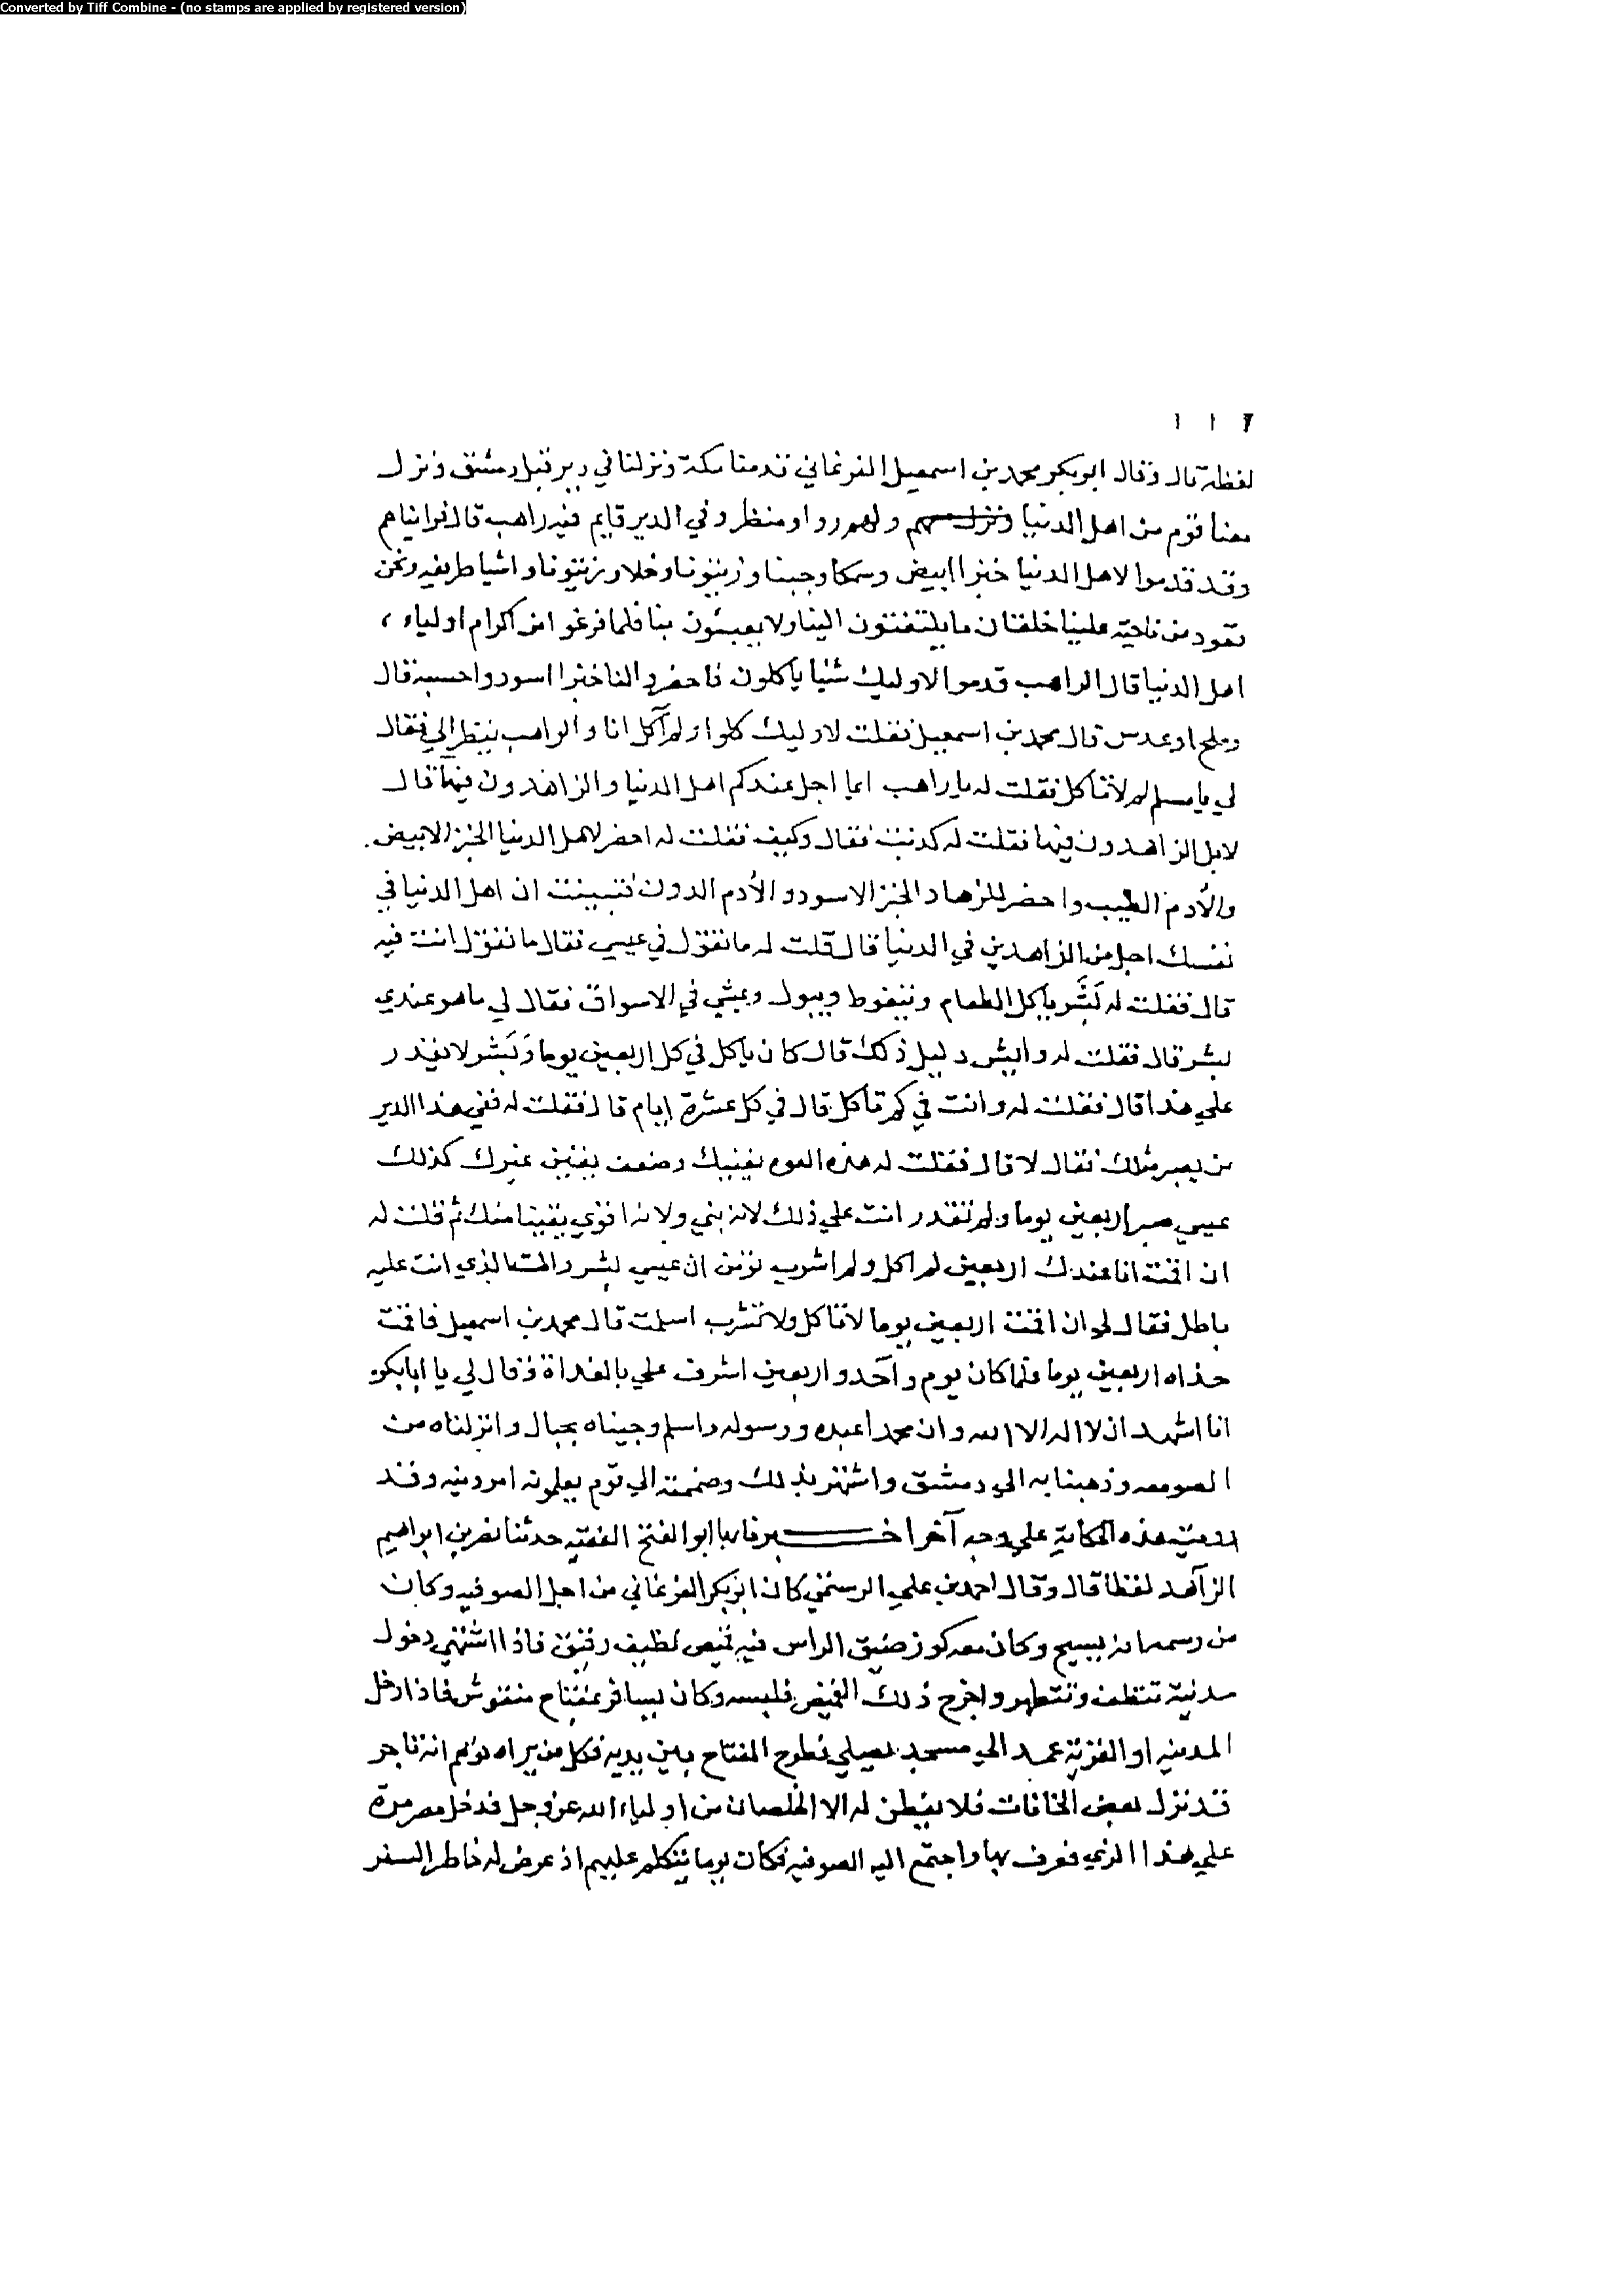 Converted by Tiff Combine - (no stamps are applied by registered version)
١١٦
لفظة قال وقال ابو بكر محمد بن اسمعيل الفرغاني قدمنا مكة ونزلنا في دير قبل دمشق ونزل
معنا قوم من اهل الدنيا ولهم روا ومنظر وفي الدير قايم فيه راهب قال فراينا هم
وقد قدموا لاهل الدنيا خبزا ابيض وسمكا وجبنا وزيتونا وخلا وزيتونا واشيا طريفه ونحن
قعود من ناحية علينا خلقان ما يلتفتون الينا ولا يعبئون بنا فلما فرغوا من اكرام اولياء
اهل الدنيا قال الراهب قدموا لاوليك شيا ياكلون فاحضر والنا خبزا اسود واحسبه قال
وملح او عدس قال محمد بن اسمعيل فقلت لاوليك كلوا ولم آكل انا والراهب ينظر الي فقال
لي يا مسلم لم لا تاكل فقلت له يا راهب ايما اجل عندكم اهل الدنيا والزاهدون فيها قال
لا بل الزاهدون فيها فقلت له كذبت فقال وكيف فقلت له احضر لاهل الدنيا الخبز الابيض
والأدم الطيب واحضر للزهاد الخبز الاسود والأدم الدون فتبينت ان اهل الدنيا في
نفسك اجل من الزاهدين في الدنيا قال قلت له ما تقول في عيسى فقال ما تقول انت فيه
قال فقلت له بَشَر ياكل الطعام ويتغوط ويبول ويمشي في الاسواق فقال لي ما هو عندي
بشر قال فقلت له وايش دليل ذلك قال كان ياكل في كل اربعين يوما وَبَشر لا يقدر
علي هذا قال فقلت له وانت في كم تاكل قال في كل عشرة ايام قال فقلت له ففي هذا الدير
من يصبر مثلك فقال لا قال فقلت له هذه القوم يقينك وضعف يقين غيرك كذلك
عيسى صبر اربعين يوما ولم تقدر انت علي ذلك لانه نبي ولانه اقوي يقينا منك ثم قلت له
ان اقمت انا عندك اربعين لم اكل ولم اشرب تؤمن ان عيسى بشر والذي انت عليه
باطل فقال لي ان اقمت اربعين يوما لا تاكل ولا تشرب اسلمت قال محمد بن اسمعيل فاقمت
حذاه اربعين يوما فلما كان يوم واحد واربعين اشرف علي بالغداة وقال لي يا ابا بكر
انا اشهد ان لا اله الا الله وان محمدا عبده ورسوله واسلم وجيناه بحبال وانزلناه من
الصومعه وذهبنا به الي دمشق واشتهر بذلك وضممته الي قوم يعلمونه امر دينه وقد
رويت هذه الحكاية علي وجه آخر اخــــبرناها ابو الفتح الفقيه حدثنا نصر بن ابراهيم
الزاهد لفظا قال وقال احمد بن علي الرستمي كان ابو بكر الفرغاني من اجل الصوفيه وكان
من رسمه انه يسيح وكان معه كوز ضيق الراس فيه قميص لطيف رقيق فاذا اشتهي دخول
مدينة تنظف وتطهر واخرج ذلك القميص فلبسه وكان يسافر بمفتاح منقوش فاذا دخل
المدينه او القرية عمد الي مسجد يصلي فطرح المفتاح بين يديه فكل من يراه توهم انه تاجر
قد نزل بعض الخانات فلا يفطن له الا الخلصان من اولياء الله عز وجل فدخل مصر مرة
علي هذا الزي فعرف بها واجتمع اليه الصوفيه فكان يوما يتكلم عليهم اذ عرض له خاطر السفر